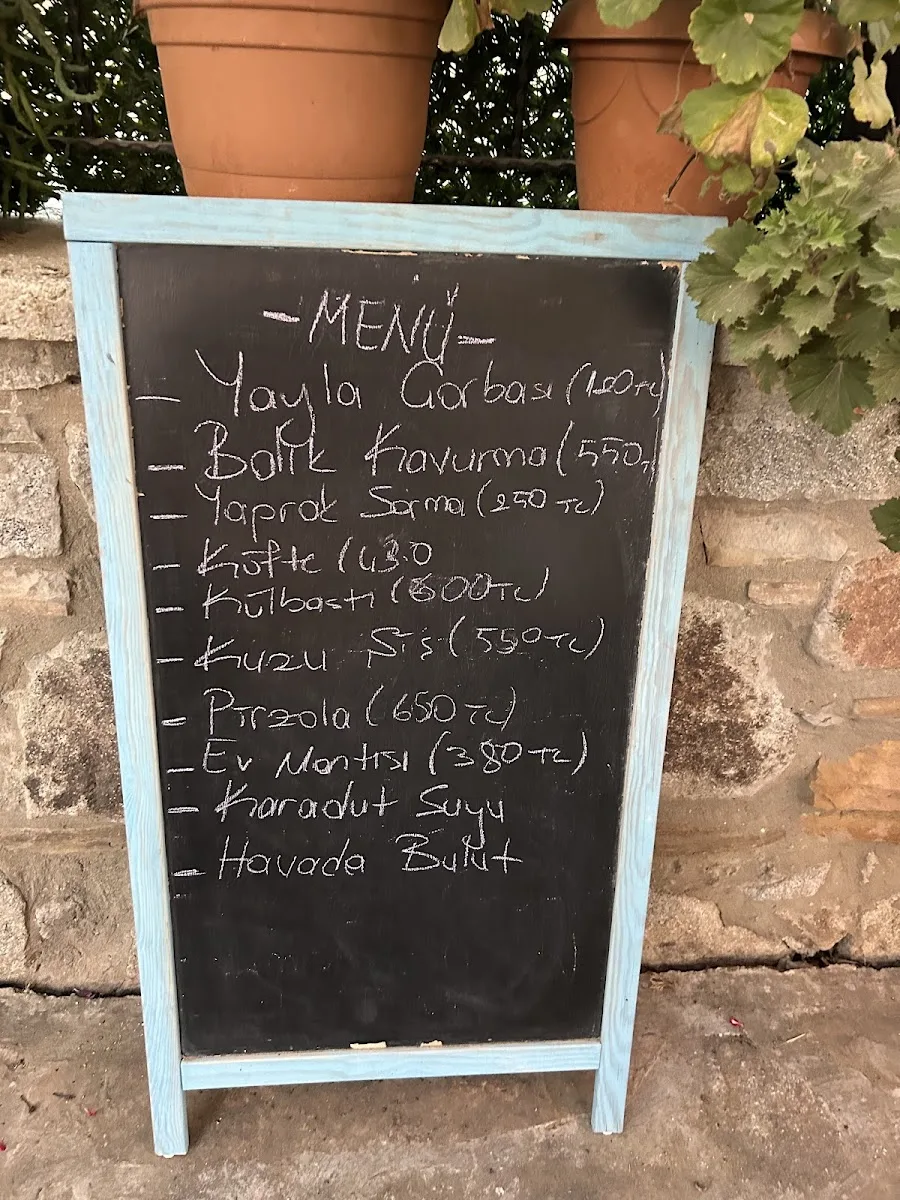 -MENÜ-
- Yayla Çorbası (120 TL)
- Balık Kavurma (550 TL
- Yaprak Sarma (250 TL)
- Köfte (430
- Külbastı (600 TL)
- Kuzu Şiş (550 TL)
- Pirzola (650 TL)
- Ev Mantısı (380 TL)
- Karadut Suyu
- Havada Bulut